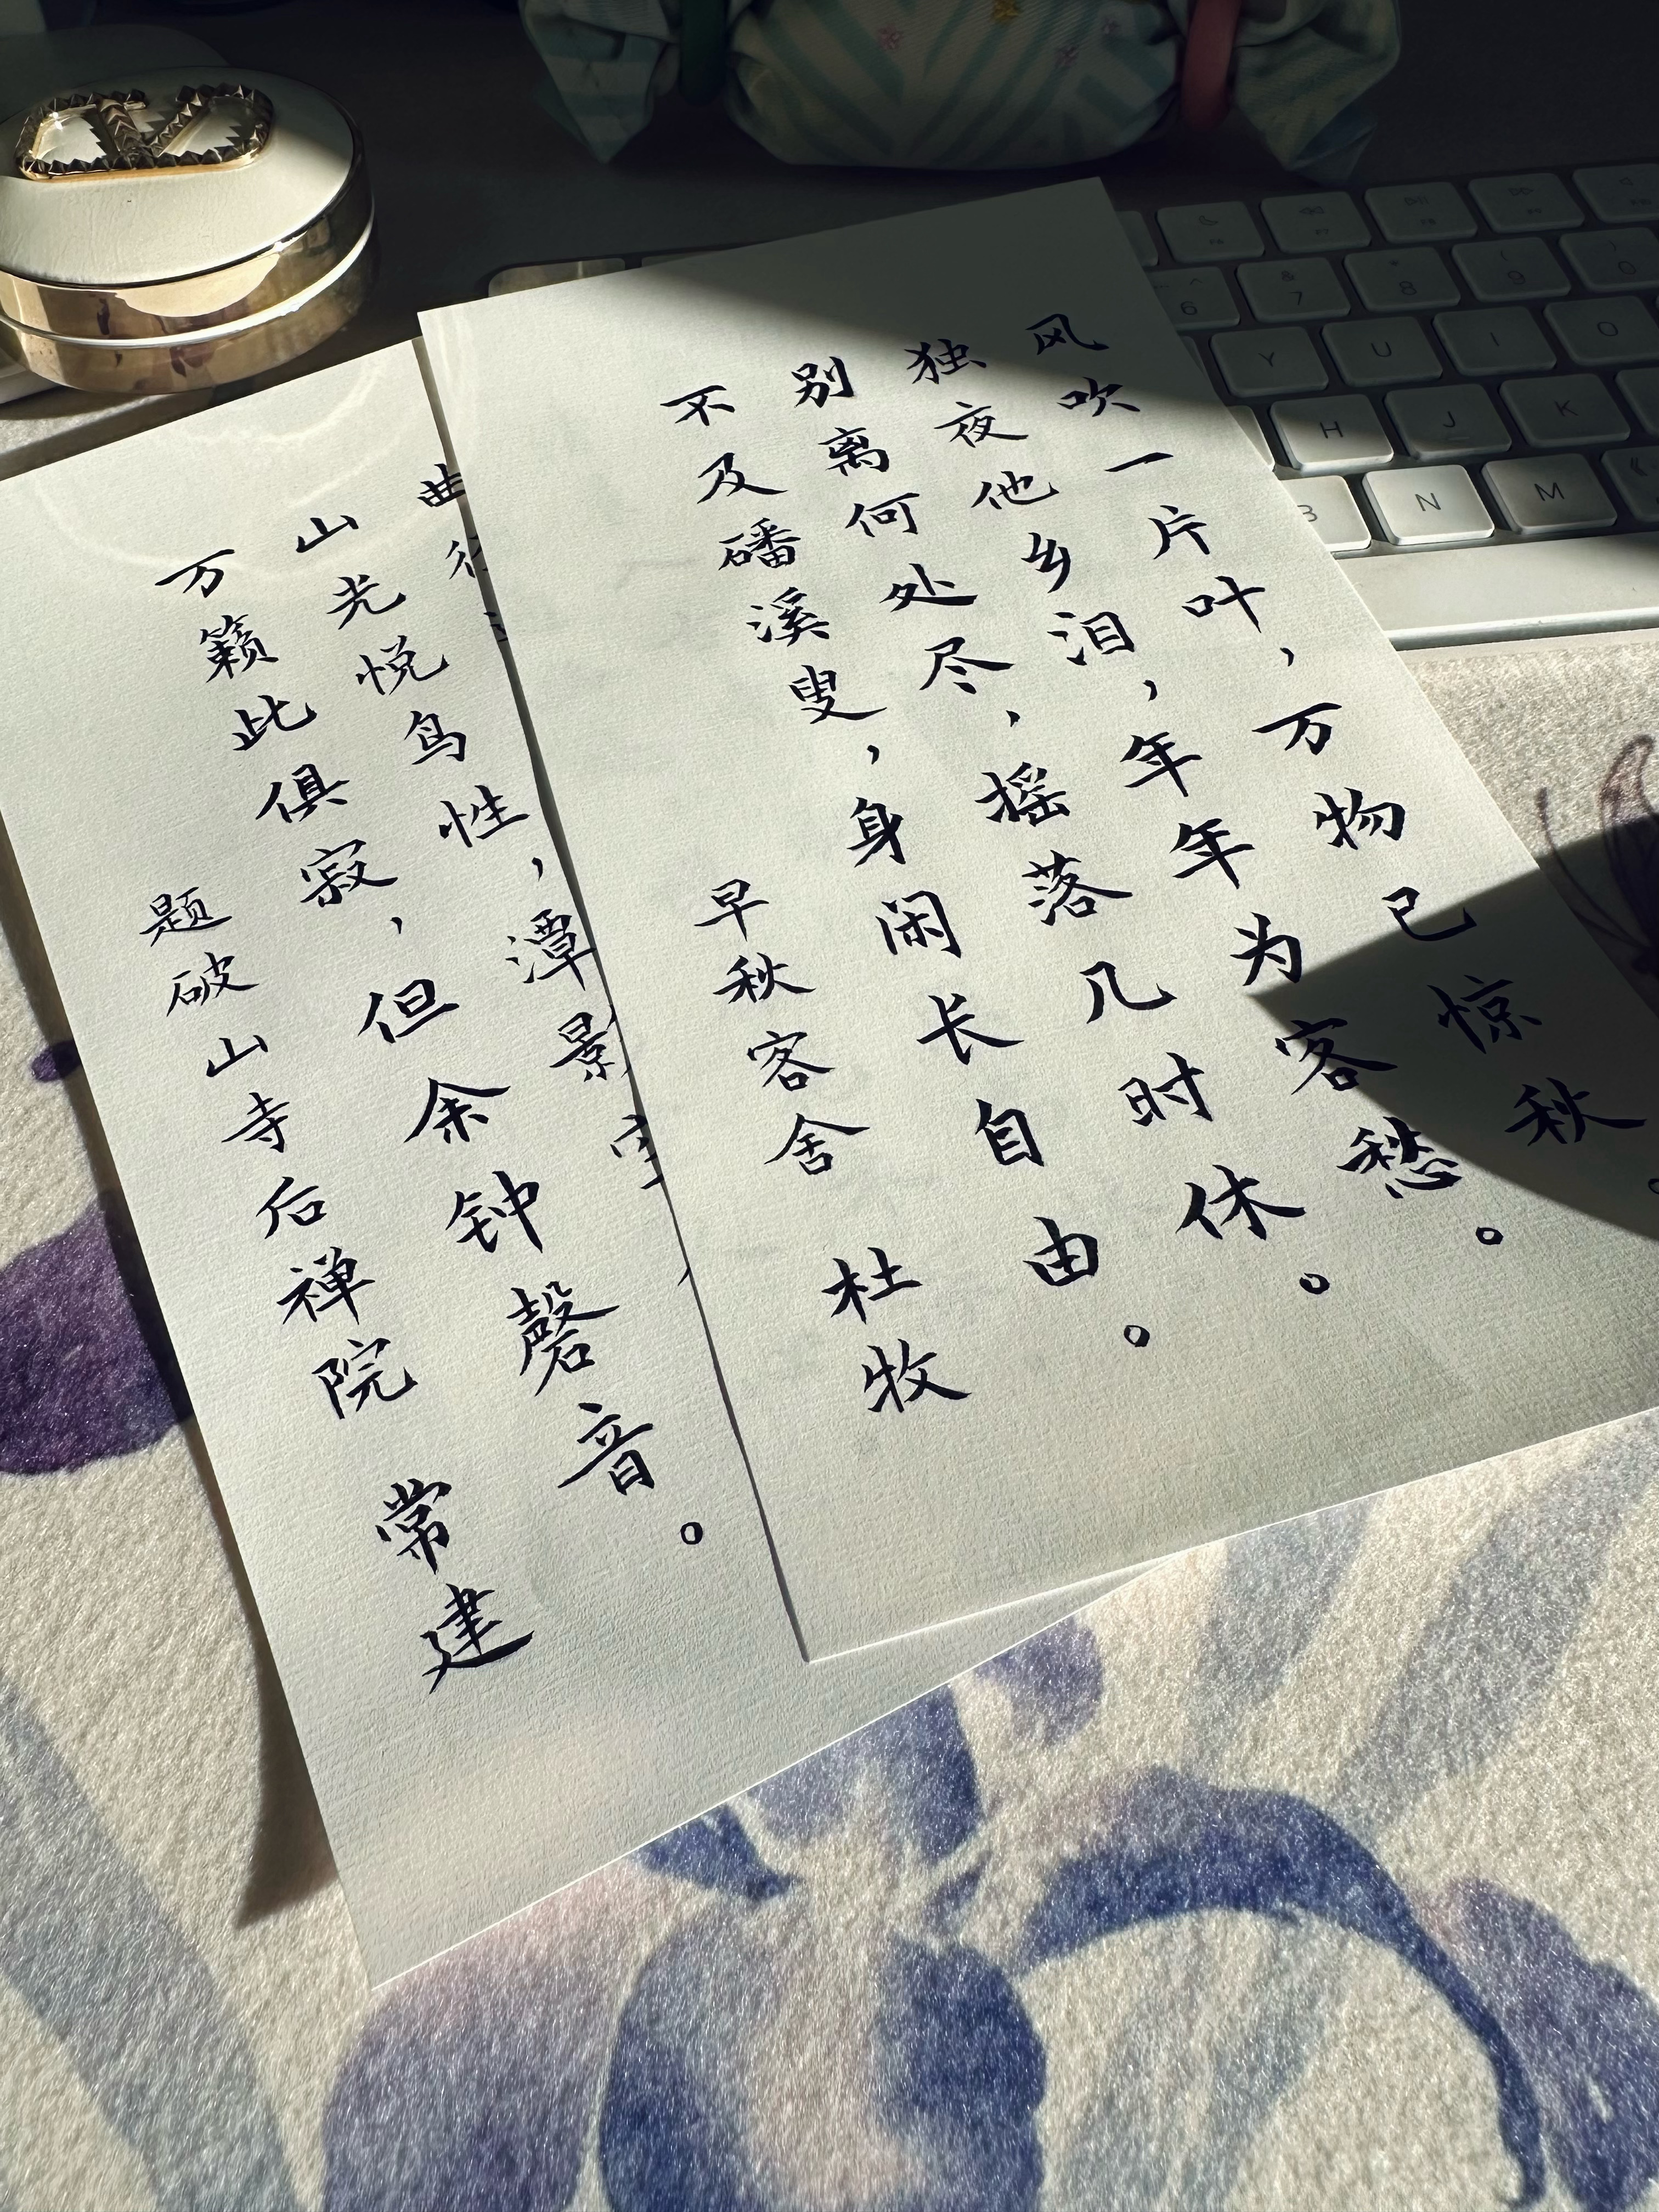 风吹一片叶，万物已惊秋。
独夜他乡泪，年年为客愁。
别离何处尽，摇落几时休。
不及磻溪叟，身闲长自由。
早秋客舍 杜牧
曲
山光悦鸟性，潭影
万籁此俱寂，但余钟磬音。
题破山寺后禅院 常建
F6
F7
F8
F9
6
& 7
* 8
( 9
) 0
Y U I O
H J K
B N M